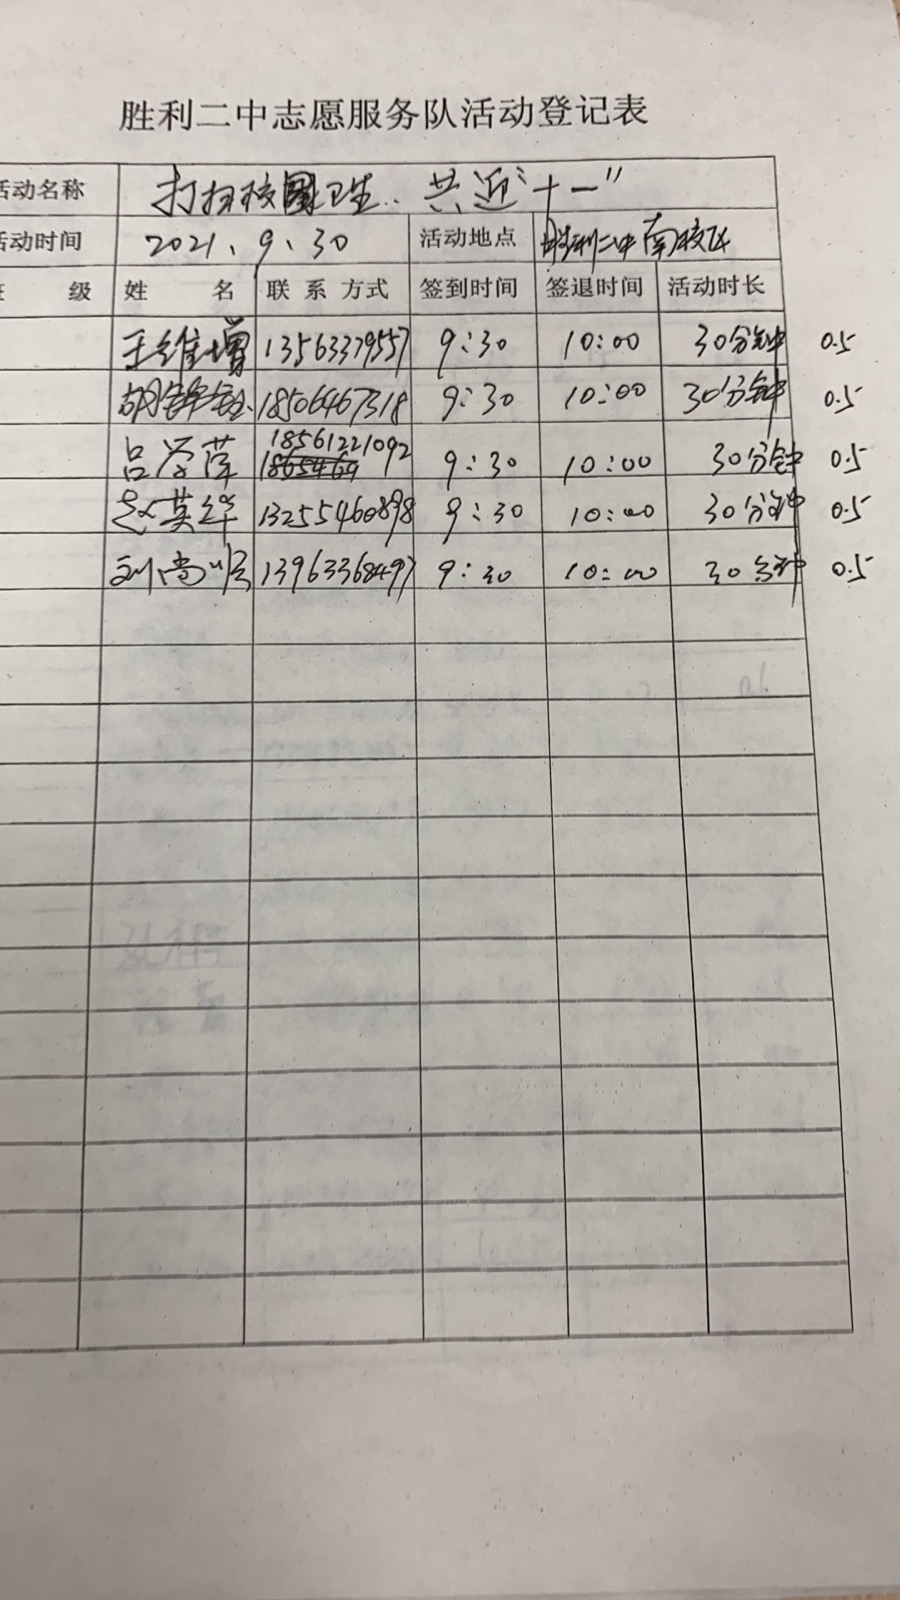 胜利二中志愿服务队活动登记表
活动名称 打扫校园卫生..共迎"十一"
活动时间 2021、9、30 活动地点 胜利二中南校区
班 级 姓 名 联系方式 签到时间 签退时间 活动时长
王维增 13563379557 9:30 10:00 30分钟 0.5
18506467318 9:30 10:00 30分钟 0.5
吕学萍 18561221092 9:30 10:00 30分钟 0.5
赵英华 13255460898 9:30 10:00 30分钟 0.5
刘尚顺 13963368497 9:30 10:00 30分钟 0.5